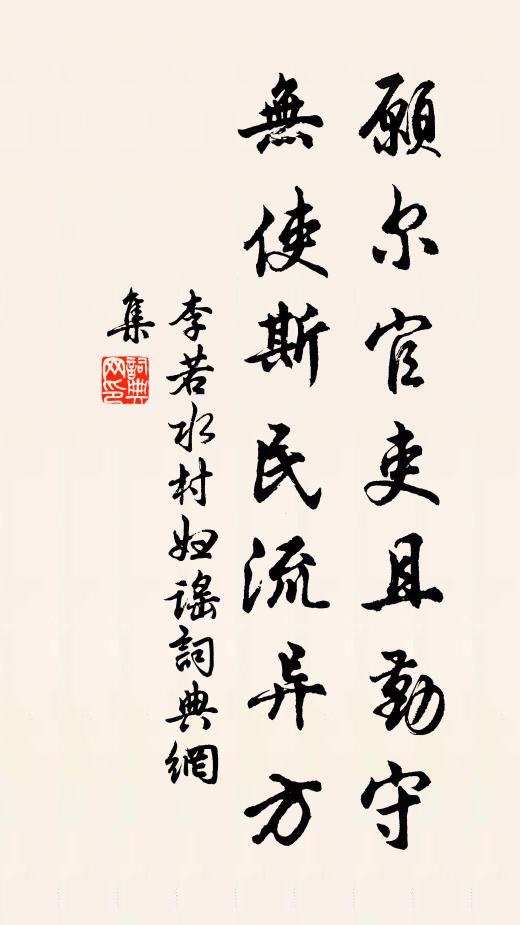 願尔官吏且勤守
無使斯民流异方
李若水村妇谣詞典網
集
詞典
网印